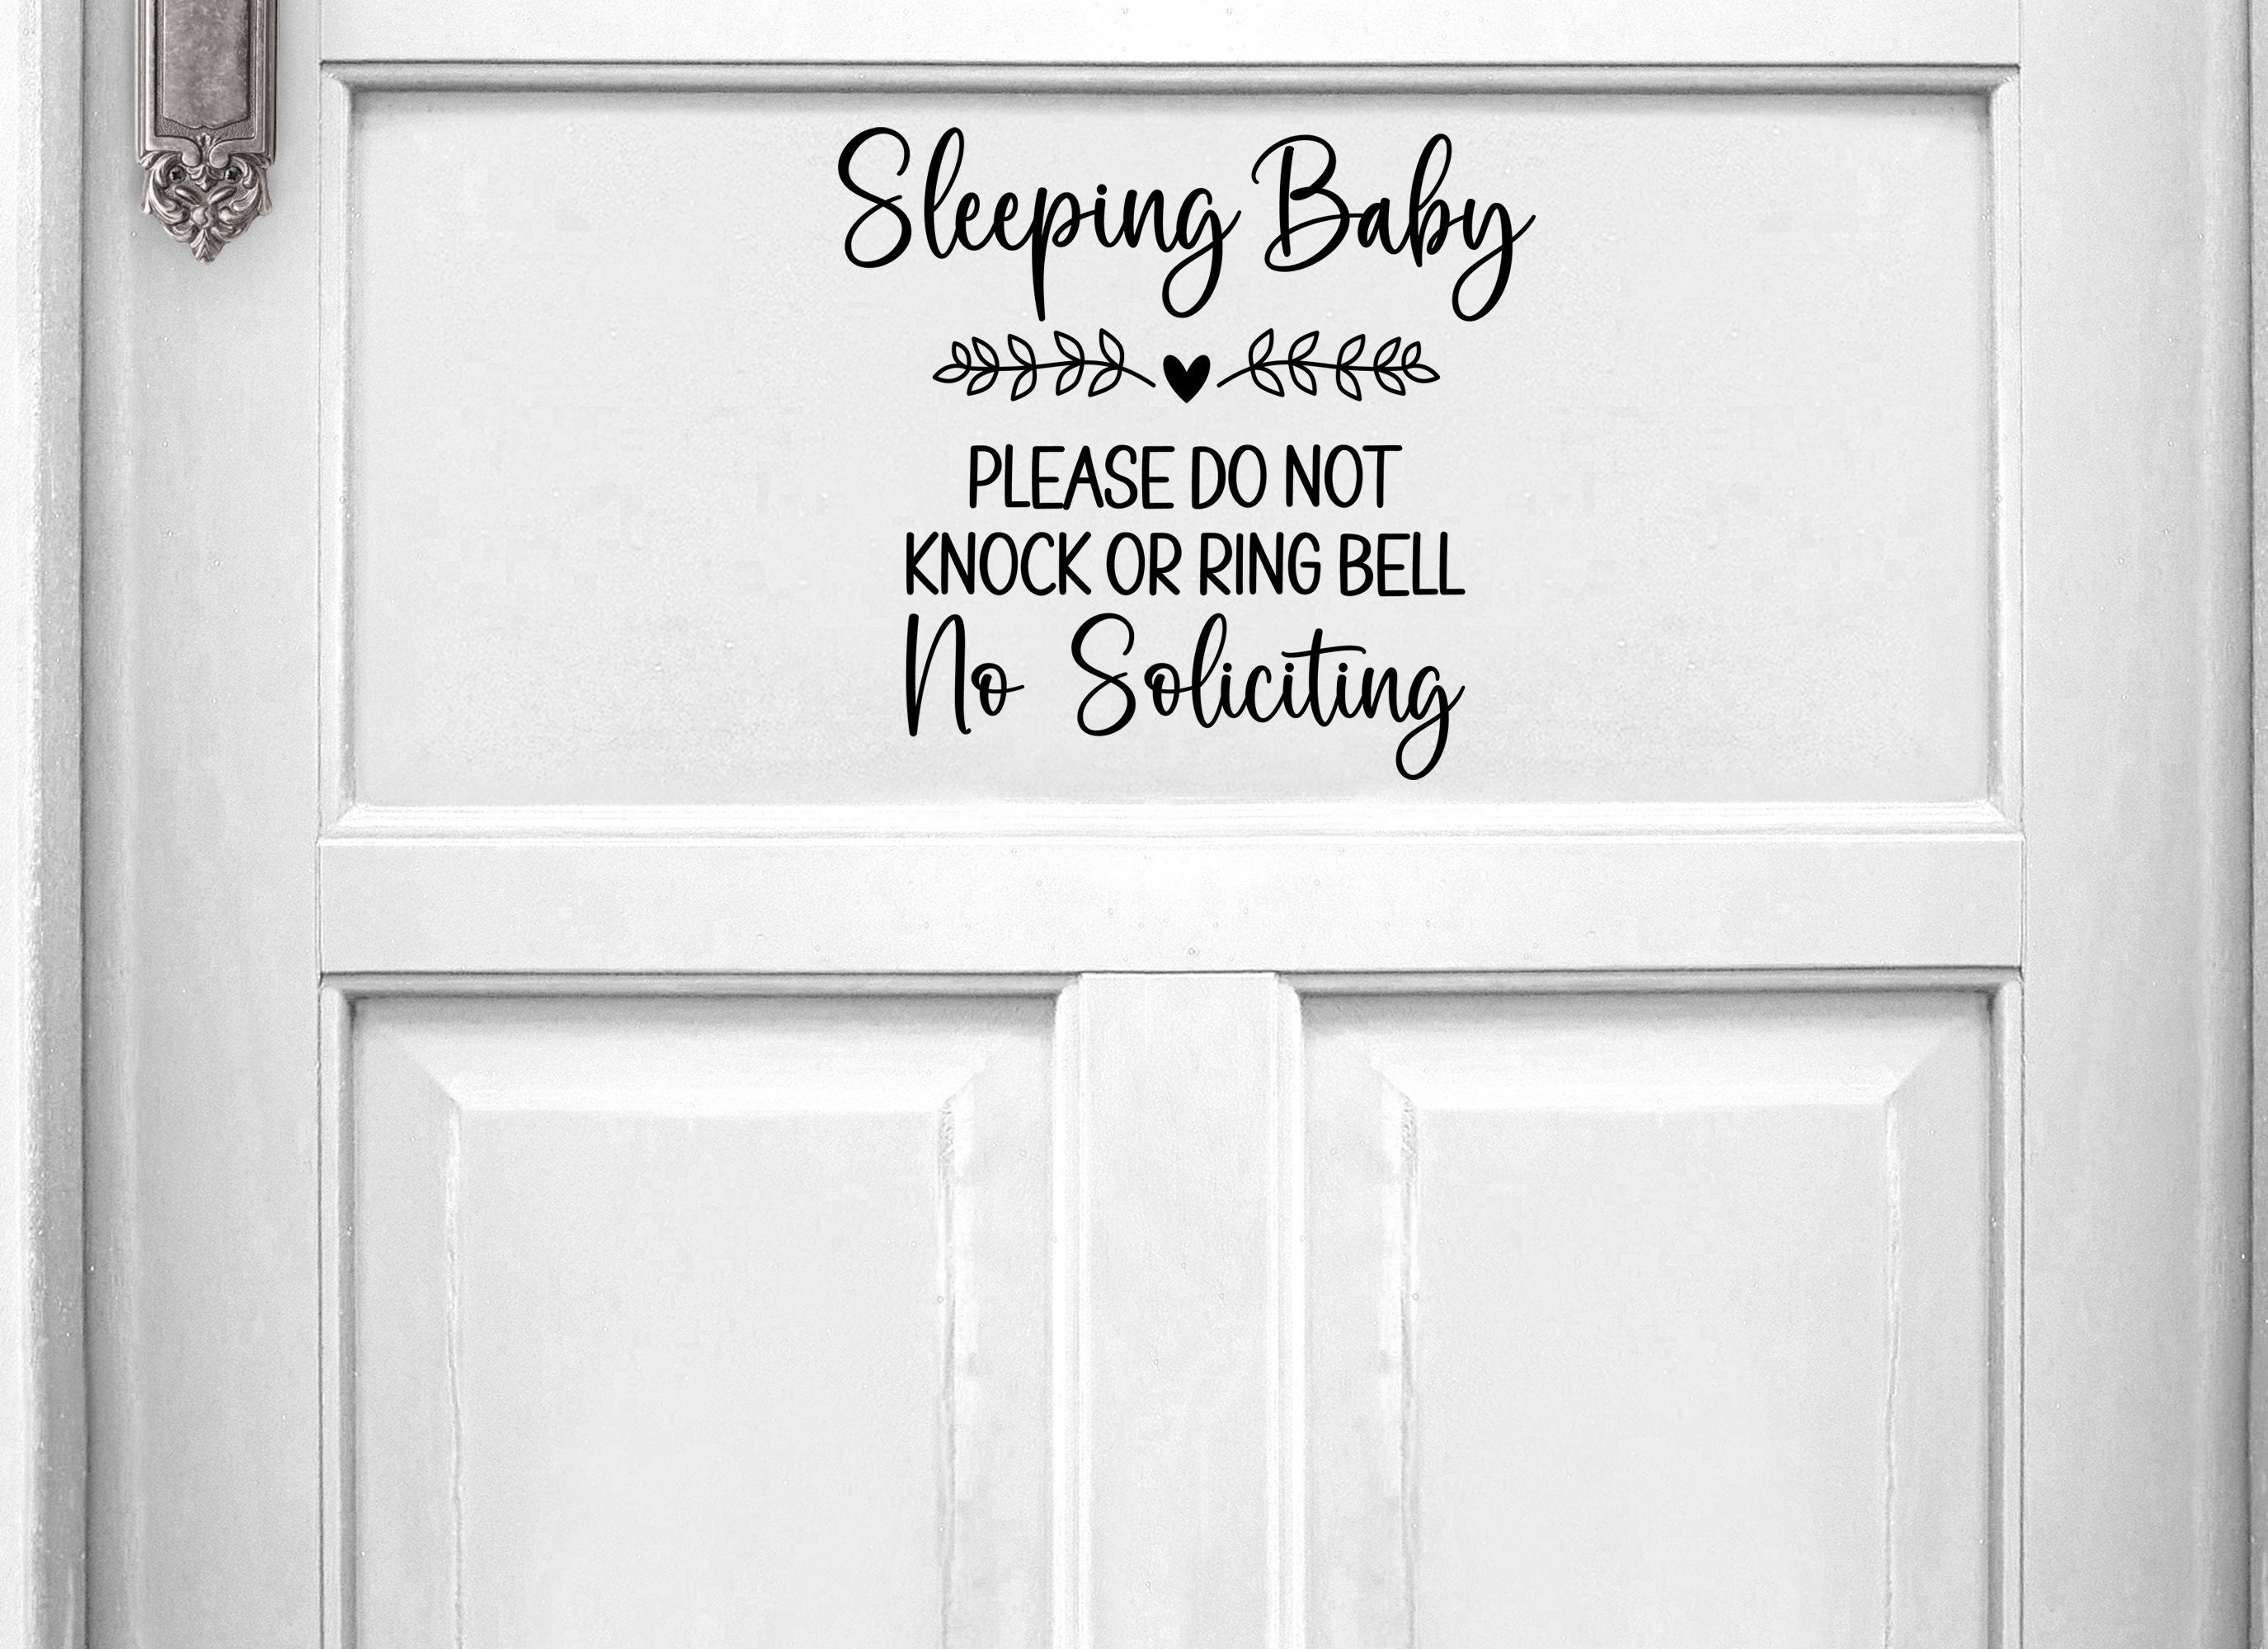 Sleeping Baby
PLEASE DO NOT
KNOCK OR RING BELL
No Soliciting